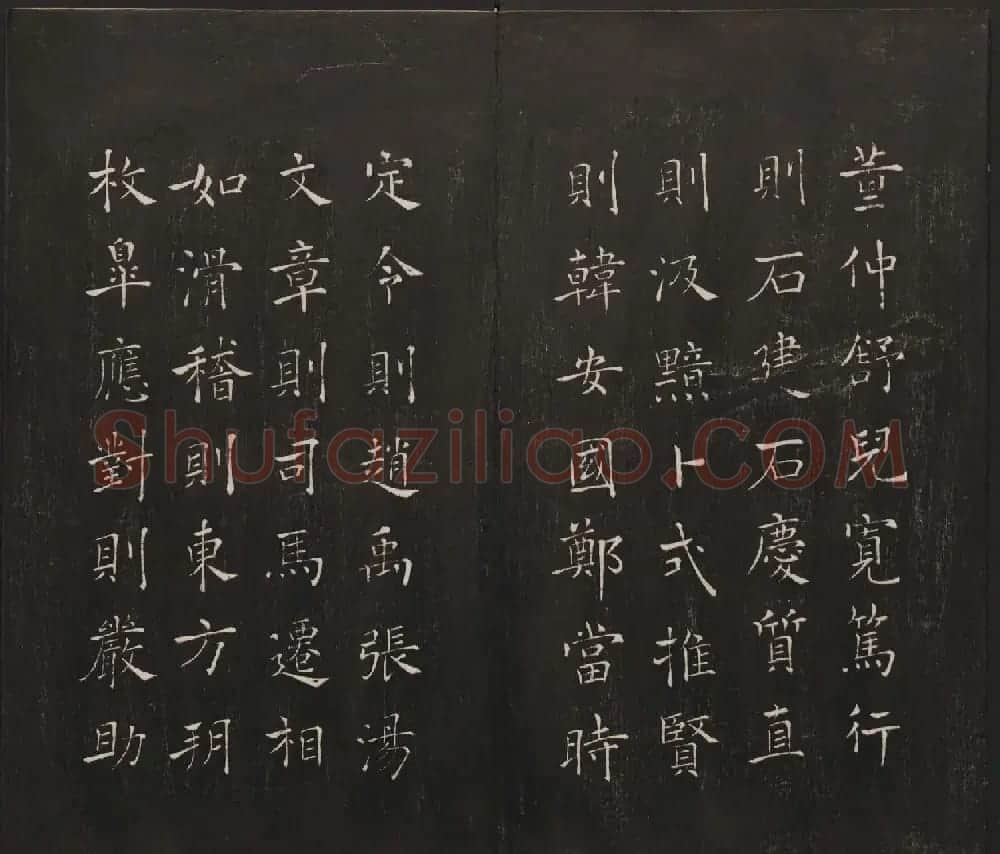 董仲舒兒寬篤行
則石建石慶質直
則汲黯卜式推賢
則韓安國鄭當時
定令則趙禹張湯
文章則司馬遷相
如滑稽則東方朔
枚皋應對則嚴助
Shufaziliao.COM